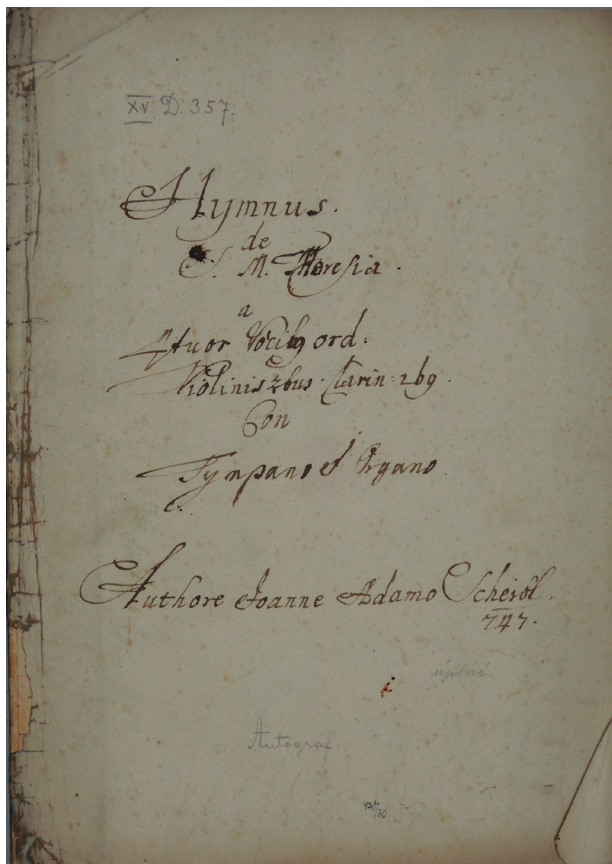 XV D. 357.
Hymnus.
de
S. M. Theresia.
a
4tuor Vocibg ord:
Violinis 2bus. Clarin: 2bg.
Con
Tympano et Organo
C.
Authore Joanne Adamo Scheibl.
747.
úplné.
Autograf.